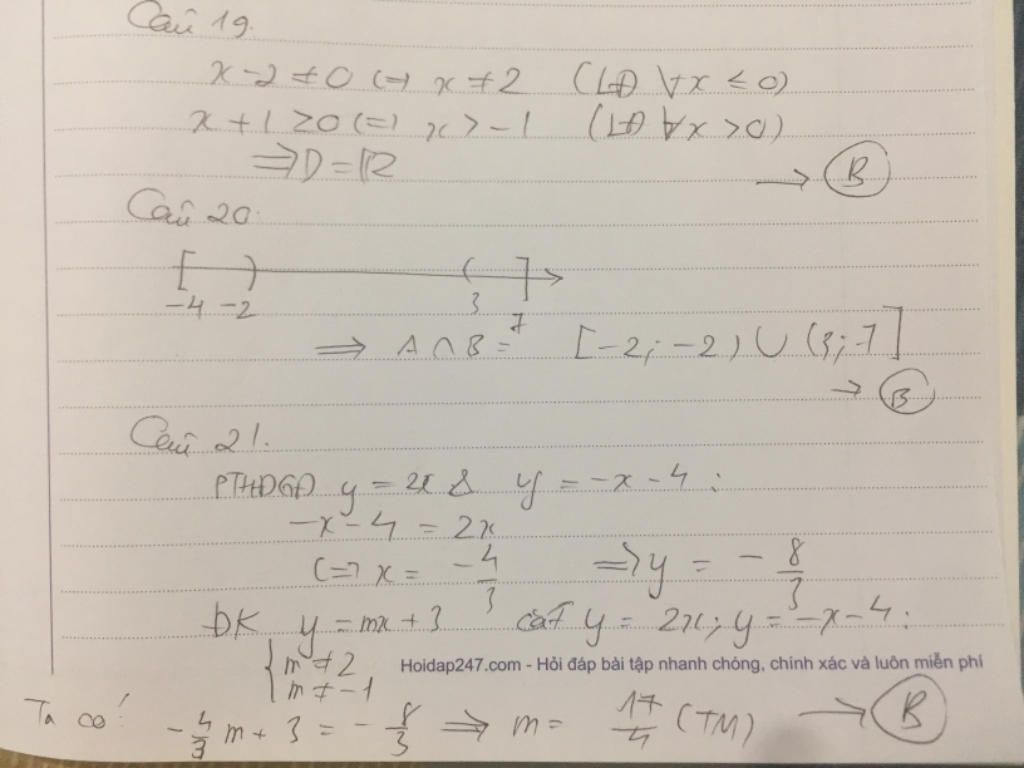 Câu 19.
x - 2 ≠ 0 (=) x ≠ 2 (LĐ ∀x ≤ 0)
x + 1 ≥ 0 (=) x > -1 (LĐ ∀x > 0)
=> D = R
→ B
Câu 20.
[ ) ( ]
-4 -2 3 7
=> A ∩ B = [-2; -2) ∪ (3; 7]
→ B
Câu 21.
PTHĐGĐ y = 2x & y = -x - 4 :
-x - 4 = 2x
(=) x = -4/3 => y = -8/3
ĐK y = mx + 3 cắt y = 2x; y = -x - 4 :
{ m ≠ 2
m ≠ -1
Hoidap247.com - Hỏi đáp bài tập nhanh chóng, chính xác và luôn miễn phí
Ta có: -4/3 m + 3 = -8/3 => m = 17/4 (TM) → B